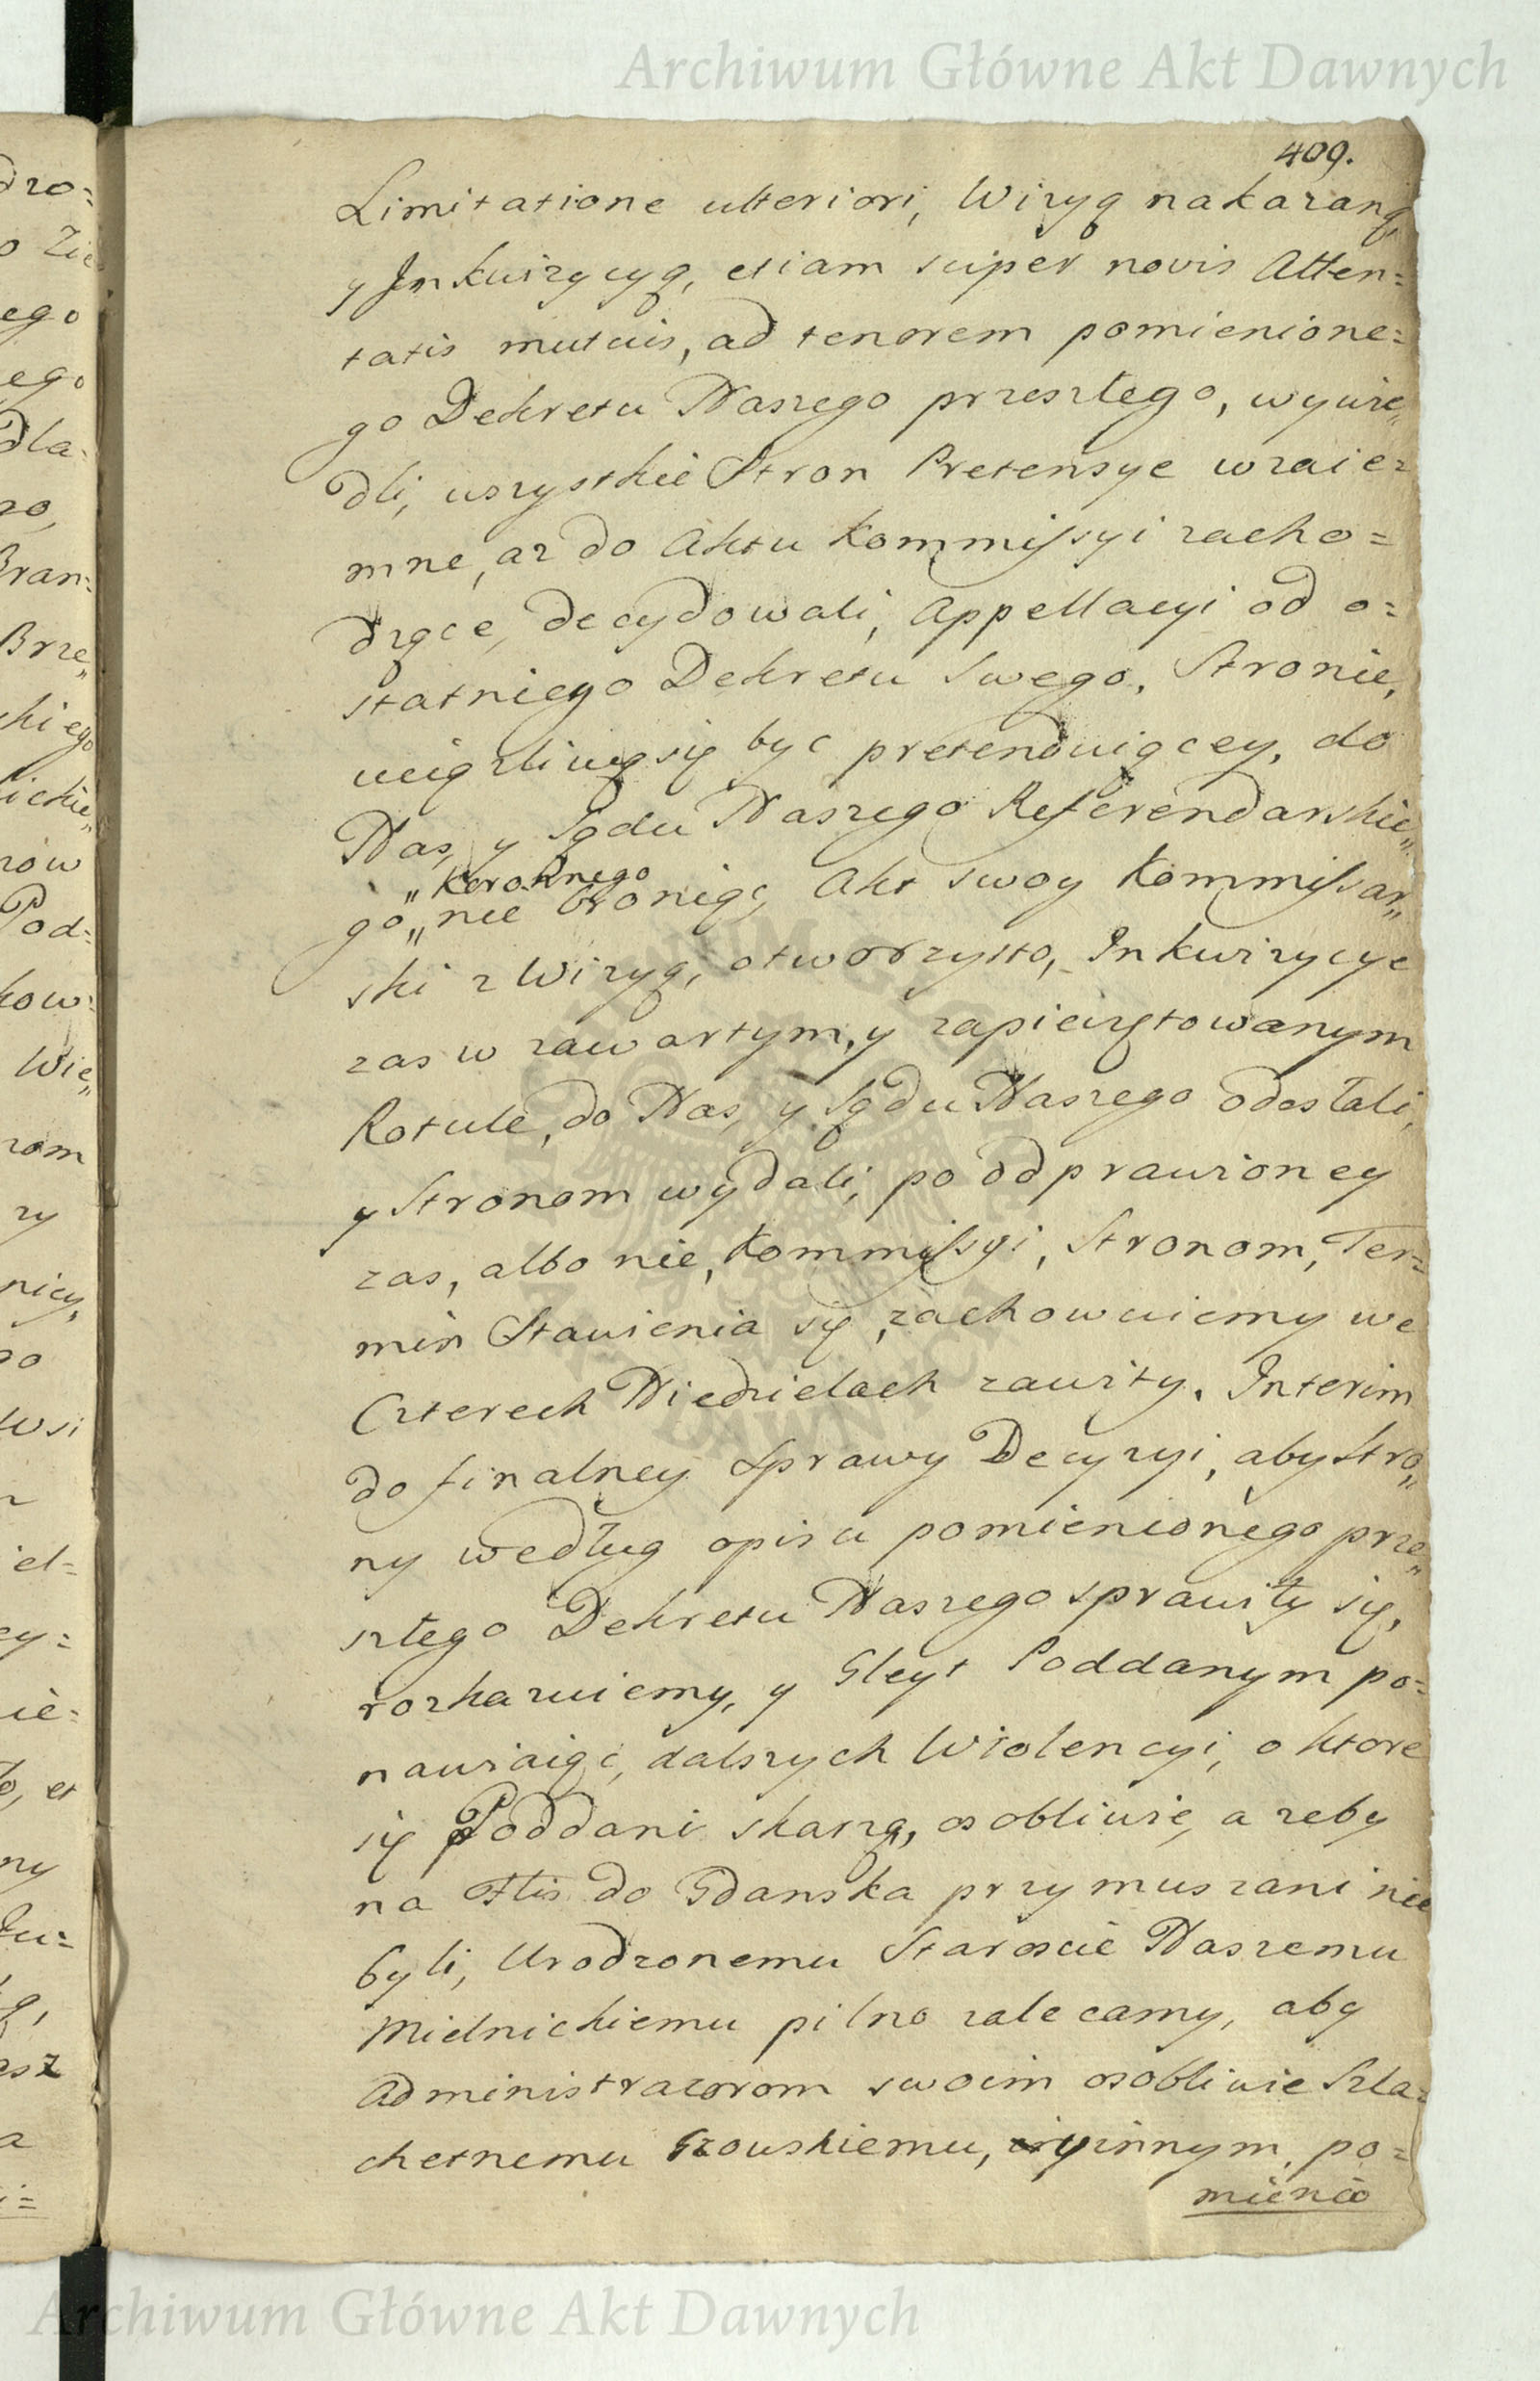 Archiwum Główne Akt Dawnych
409.
Limitatione ulteriori, Wizyą nakazaną,
y Jnkwizycyą, etiam super novis Atten=
tatis mutuis, ad tenorem pomienione=
go Dekretu Naszego przeszłego, wywie„
dli, wszystkie Stron Pretensye wzaie=
mne, az do Aktu Kommissyi zacho=
dzące, decydowali, Appellacyi od o=
statniego Dekretu Swego, Stronie,
uciązliwą się byc pretenduiącey, do
Nas, y Sądu Naszego Referendarskie„
„Koronnego
go„ nie broniąc, Akt swoy Kommissar„
ski z Wizyą, otworzysto, Inkwizycye
zas w zawartym, y zapieczętowanym
Rotule, do Nas, y Sądu Naszego odesłali,
y Stronom wydali, po odprawioney
zas, albo nie, Kommissyi, Stronom, Ter=
min Stawienia się, zachowuiemy we
Czterech Niedzielach zawity. Interim
do finalney Sprawy Decyzyi, aby Stro„
ny według opisu pomienionego prze„
szłego Dekretu Naszego sprawiły się,
rozkazuiemy, y Gleyt Poddanym po=
nawiaiąc, dalszych Wiolencyi, o ktore
się Poddani skarzą, osobliwie, a zeby
na Flis do Gdanska przymuszani nie
byli, Urodzonemu Staroscie Naszemu
Mielnickiemu pilno zalecamy, aby
Administratorom swoim osobliwie Szla=
chetnemu, y innym, po=
mienio
Archiwum Główne Akt Dawnych